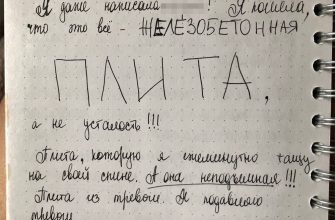 Я даже написала ! Я поняла,
что это всё - ЖЕЛЕЗОБЕТОННАЯ
ПЛИТА,
а не усталость!!!
Плита, которую я ежеминутно тащу
на своей спине. А она неподъёмная!!!
Плита из тревоги. Я подавлено
тревогой